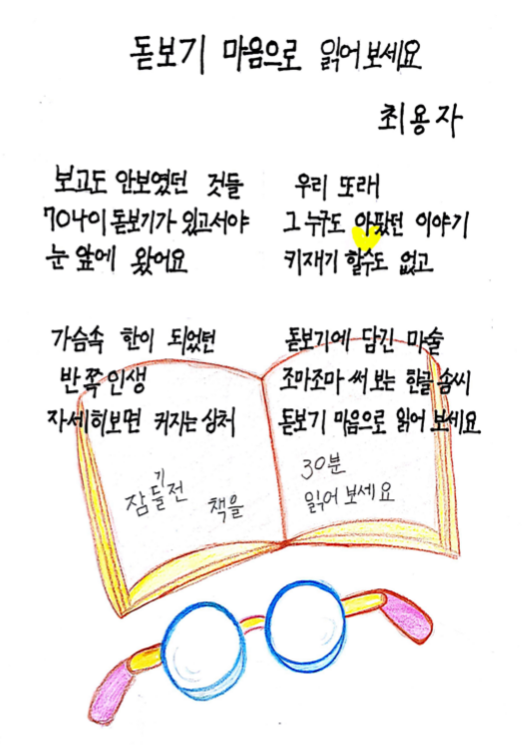 돋보기 마음으로 읽어 보세요
최용자
보고도 안보였던 것들
70넘이 돋보기가 있고서야
눈 앞에 왔어요
가슴속 한이 되었던
반쪽인생
자세히보면 커지는 상처
우리 또래
그 누구도 아팠던 이야기
키재기 할수도 없고
돋보기에 담긴 마술
조마조마 써 보는 한글 솜씨
돋보기 마음으로 읽어 보세요
잠들기전 책을
30분
읽어 보세요